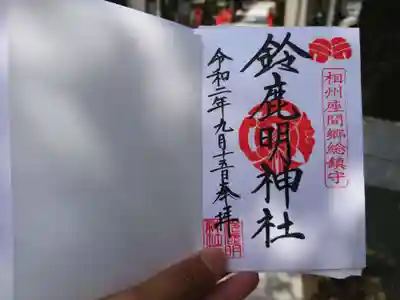 相州座間郷総鎮守
鈴鹿明神社
令和二年九月十五日奉拝